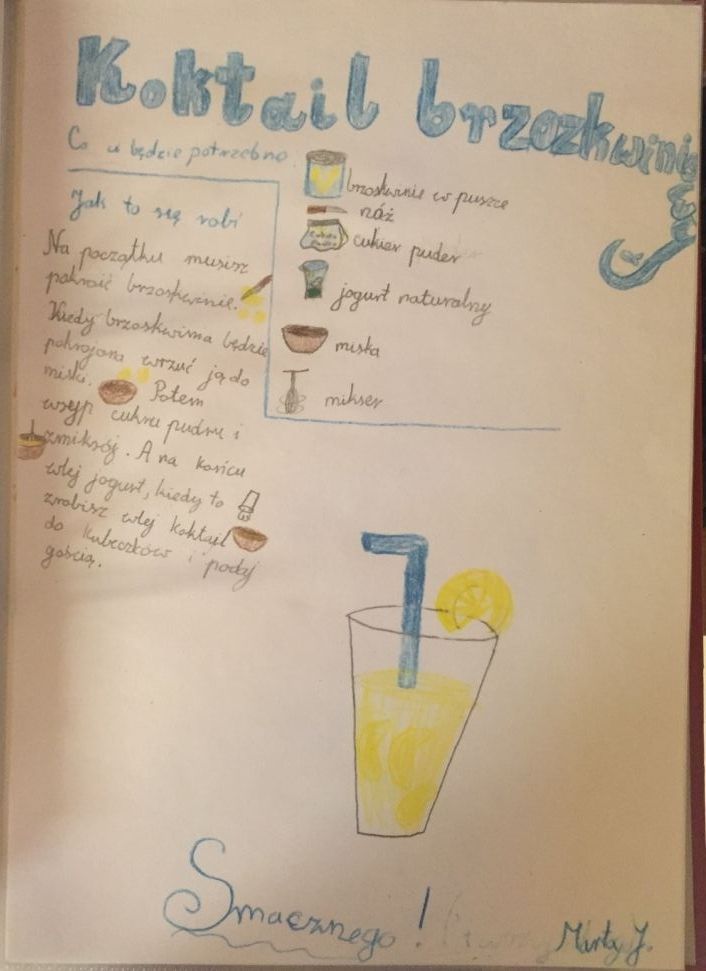 Koktail brzozkwiniowy
Co u będzie potrzebno
brzoskwinie w puszce
nóż
cukier puder
jogurt naturalny
miska
mikser
Jak to się robi
Na początku musisz
pokroić brzoskwinie.
Kiedy brzoskwinia będzie
pokrojona wrzuć ją do
miski. Potem
wsyp cukru pudru i
zmiksój. A na końcu
wlej jogurt, kiedy to
zrobisz wlej koktajl
do kubeczków i podaj
gością.
Smacznego!
Marta J.